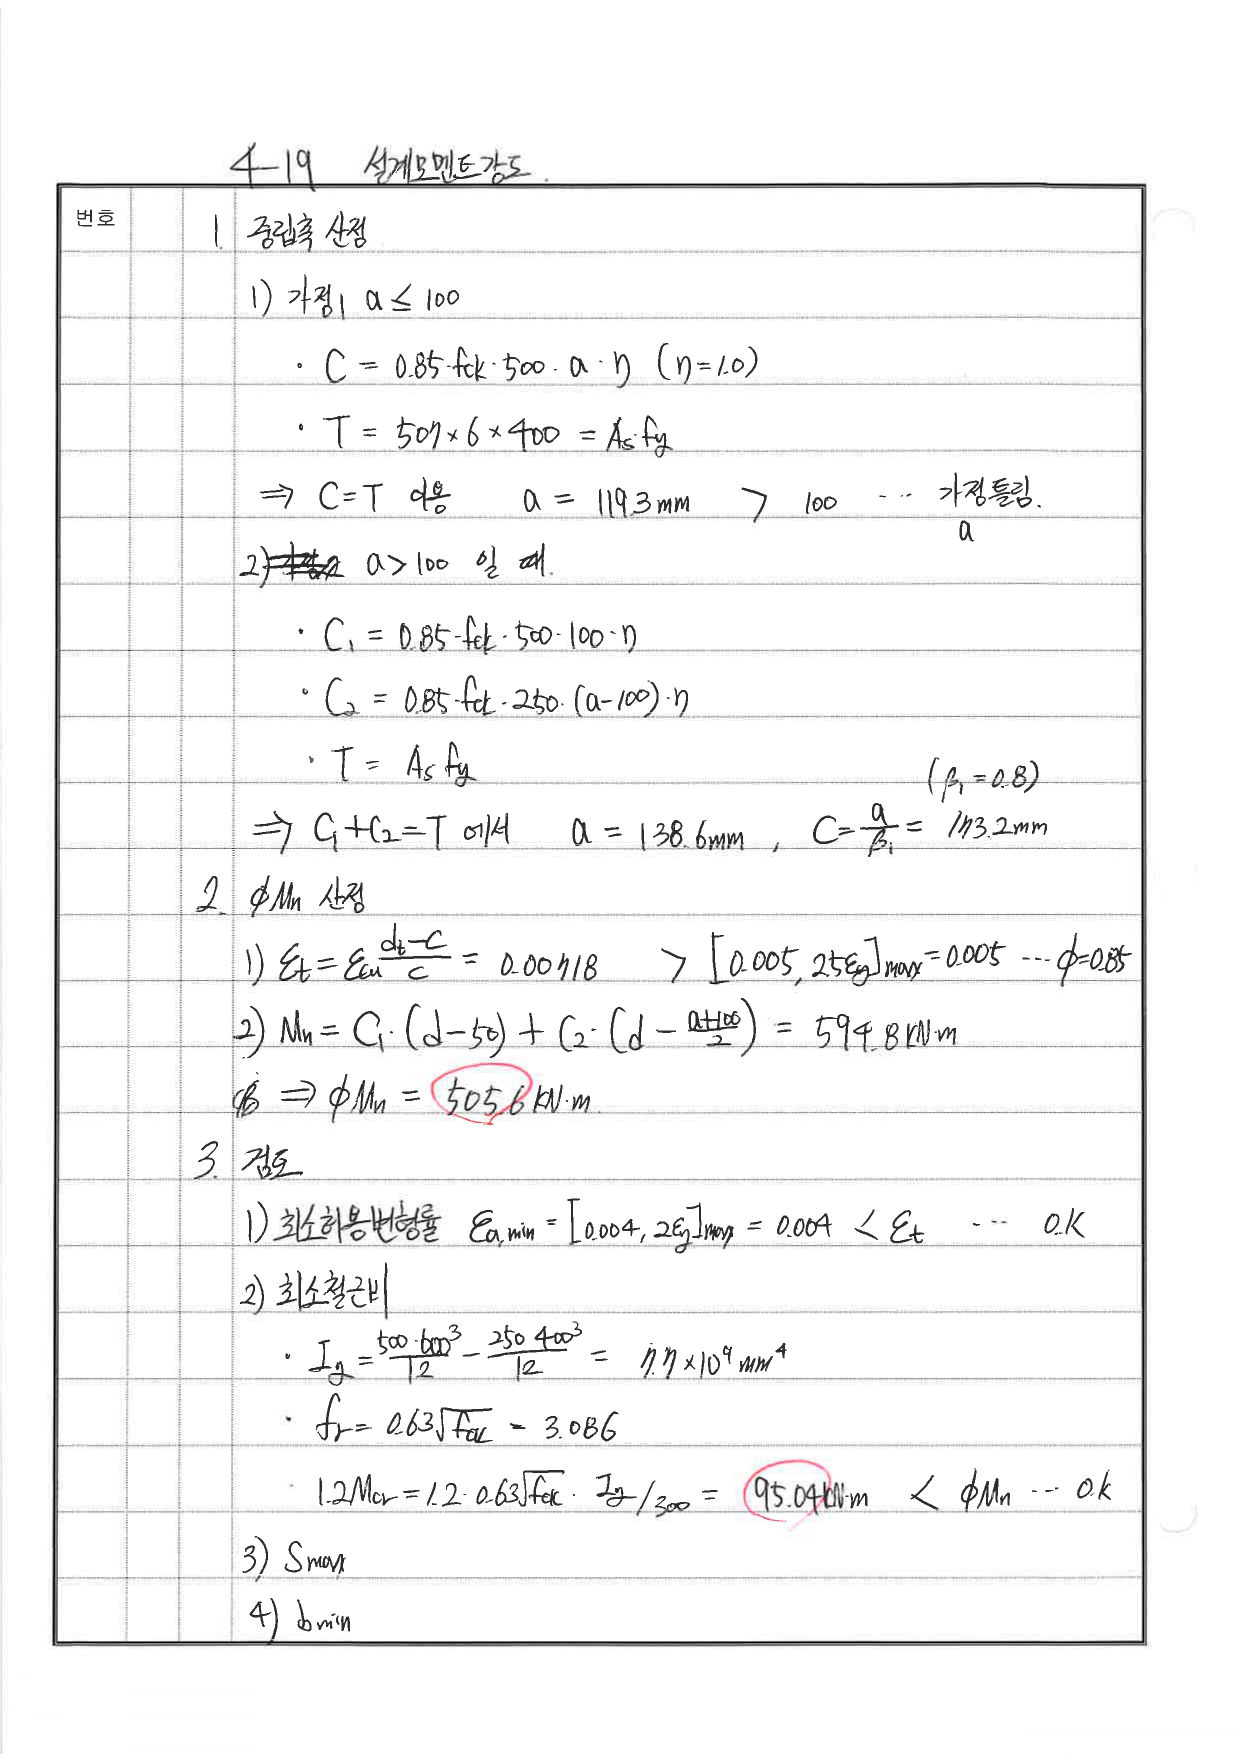 4-19 설계모멘트강도.
번호
1. 중립축 산정
1) 가정, a ≤ 100
· C = 0.85·fck·500·a·η (η=1.0)
· T = 507×6×400 = As·fy
⇒ C=T 이용 a = 119.3mm > 100 ··· 가정틀림.
a
2) a>100 일 때.
· C₁ = 0.85·fck·500·100·η
· C₂ = 0.85·fck·250·(a-100)·η
· T = As fy
(β₁=0.8)
⇒ C₁+C₂=T 에서 a = 138.6mm, C = a/β₁ = 173.2mm
2. φMn 산정
1) εt = εcu (dt-c)/c = 0.00718 > [0.005, 2.5εy]max = 0.005 ··· φ=0.85
2) Mn = C₁·(d-50) + C₂·(d - (a+100)/2) = 594.8 kN·m
⇒ φMn = 505.6 kN·m.
3. 검토
1) 최소허용변형률 εa,min = [0.004, 2εy]max = 0.004 < εt ··· O.K
2) 최소철근비
· Ig = 500·600³/12 - 250·400³/12 = 7.7×10⁹ mm⁴
· fr = 0.63√fck = 3.086
1.2Mcr = 1.2·0.63√fck · Ig/300 = 95.04kN·m < φMn ··· ok
3) Smax
4) bmin